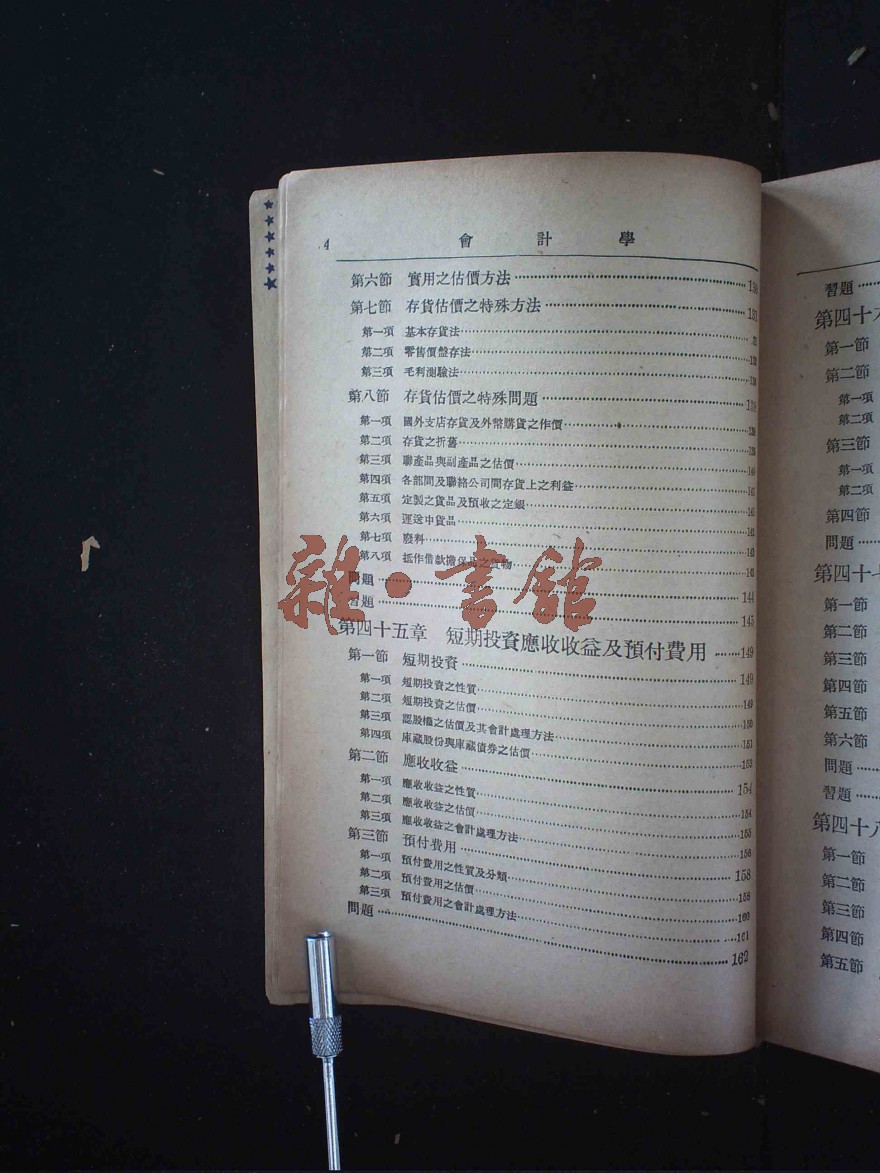 4 會計學
第六節 實用之估價方法
第七節 存貨估價之特殊方法 131
第一項 基本存貨法
第二項 零售價盤存法
第三項 毛利測驗法
第八節 存貨估價之特殊問題
第一項 國外支店存貨及外幣購貨之作價
第二項 存貨之折舊
第三項 聯產品與副產品之估價
第四項 各部間及聯絡公司間存貨上之利益
第五項 定製之貨品及預收之定銀
第六項 運送中貨品
第七項 廢料
第八項 抵作借款擔保品之貨物
問題 144
習題 145
第四十五章 短期投資應收收益及預付費用 149
第一節 短期投資 149
第一項 短期投資之性質 149
第二項 短期投資之估價 150
第三項 認股權之估價及其會計處理方法 151
第四項 庫藏股份與庫藏債券之估價 153
第二節 應收收益 154
第一項 應收收益之性質 154
第二項 應收收益之估價 155
第三項 應收收益之會計處理方法 156
第三節 預付費用 158
第一項 預付費用之性質及分類 158
第二項 預付費用之估價 160
第三項 預付費用之會計處理方法 161
問題 162
雜·書館
習題
第四十
第一節
第二節
第一項
第二項
第三節
第一項
第二項
第四節
問題
第四十
第一節
第二節
第三節
第四節
第五節
第六節
問題
習題
第四十八
第一節
第二節
第三節
第四節
第五節